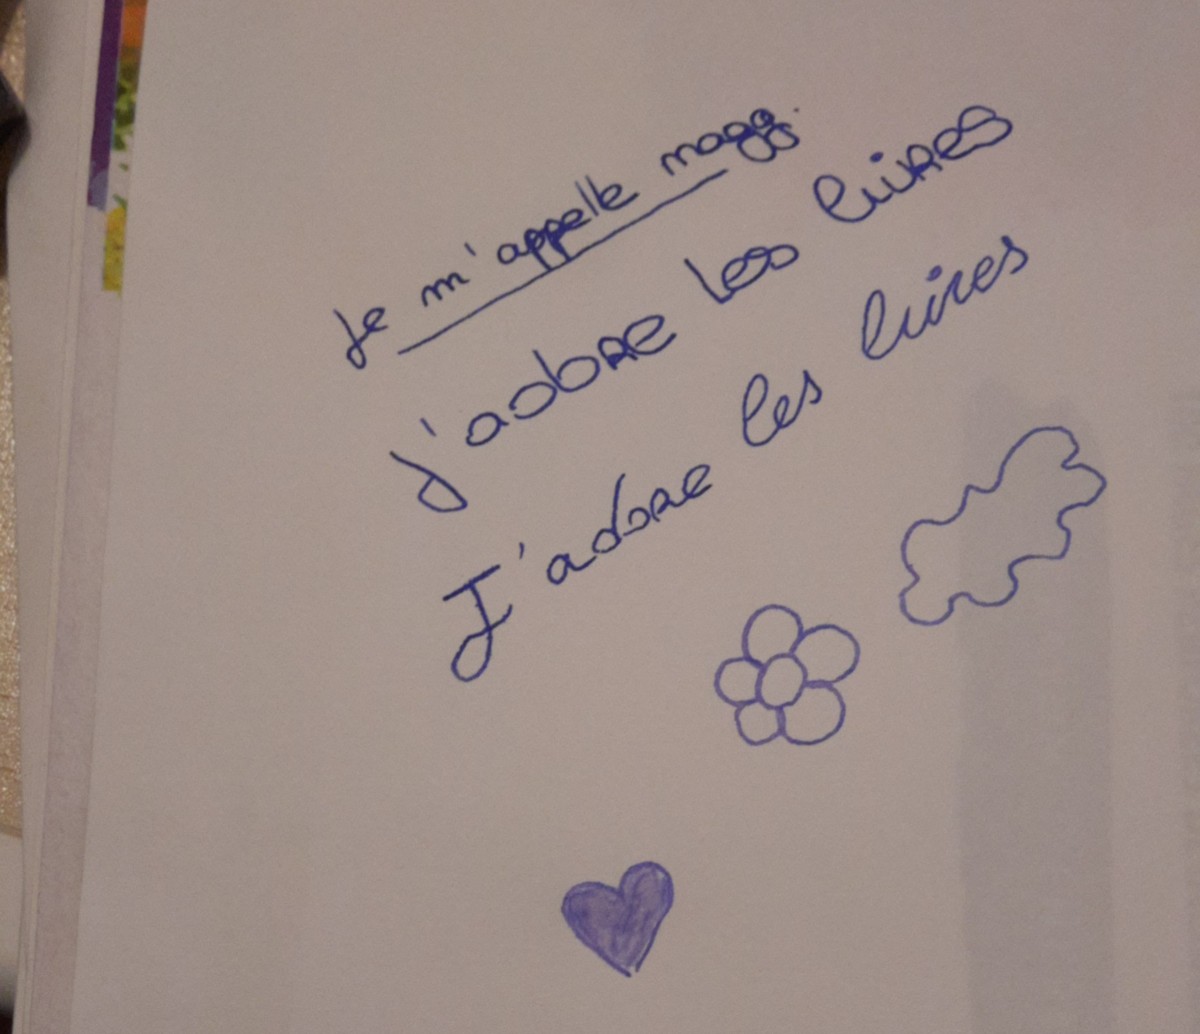 Je m'appelle magg.
J'adore les livres
J'adore les livres